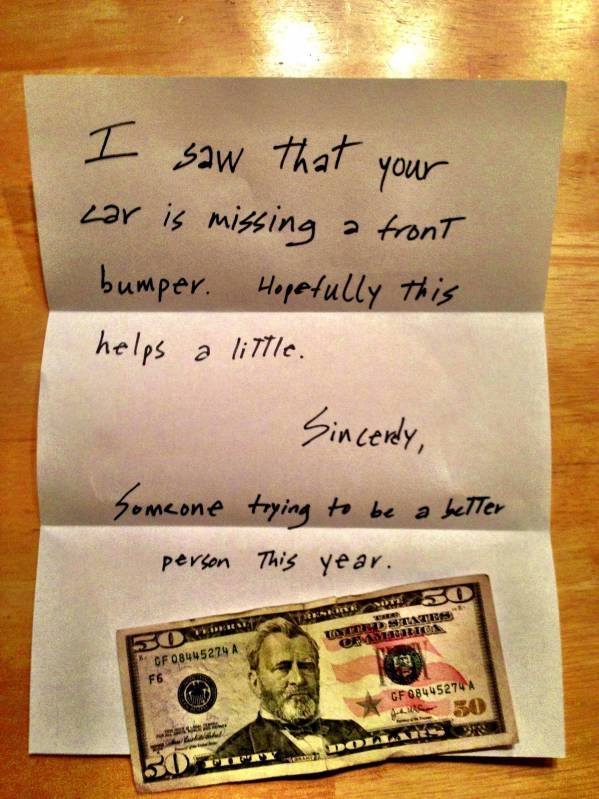 I saw that your
car is missing a front
bumper. Hopefully this
helps a little.
Sincerely,
Someone trying to be a better
person this year.
50 FEDERAL RESERVE NOTE 50
THE
UNITED STATES
OF AMERICA
GF 08445274 A
F6
GF 08445274 A
50
50 FIFTY DOLLARS